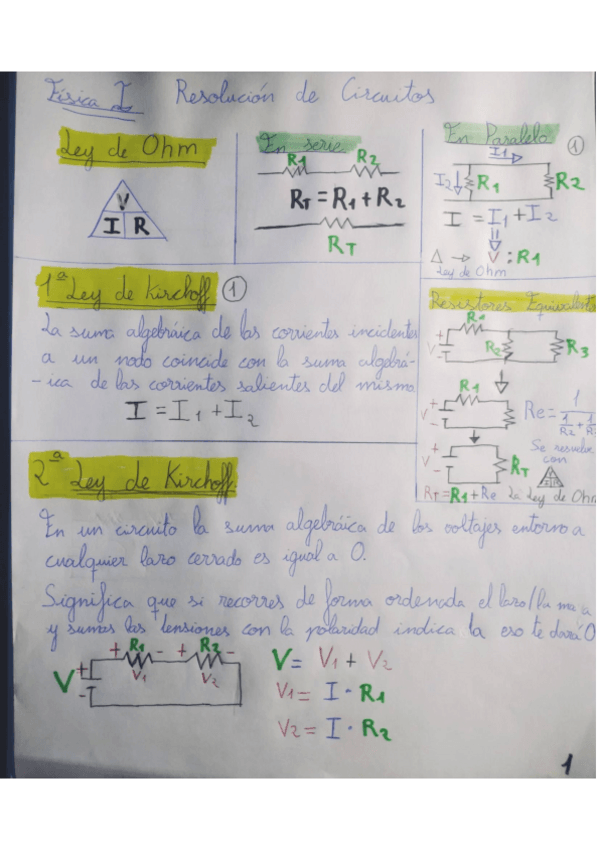 Física I Resolución de Circuitos
Ley de Ohm
V
I R
En serie
R1 R2
RT = R1 + R2
RT
En Paralelo ①
I1
I2 R1 R2
I = I1 + I2
V : R1
Ley de Ohm
1ª Ley de Kirchoff ①
La suma algebráica de las corrientes incidentes
a un nodo coincide con la suma algebrá-
-ica de las corrientes salientes del mismo
I = I1 + I2
Resistores Equivalent
R1
+
V R2 R3
-
R1
+
V Re = 1
- 1/R2 + 1/R
Se resuelve
+ con
V RT
-
RT = R1 + Re La Ley de Ohm
2ª Ley de Kirchoff
En un circuito la suma algebráica de los voltajes entorno a
cualquier lazo cerrado es igual a 0.
Significa que si recorres de forma ordenada el lazo/la ma a
y sumas las tensiones con la polaridad indica la eso te dará 0
+ R1 - + R2 -
V + V1 V2
-
V = V1 + V2
V1 = I · R1
V2 = I · R2
1